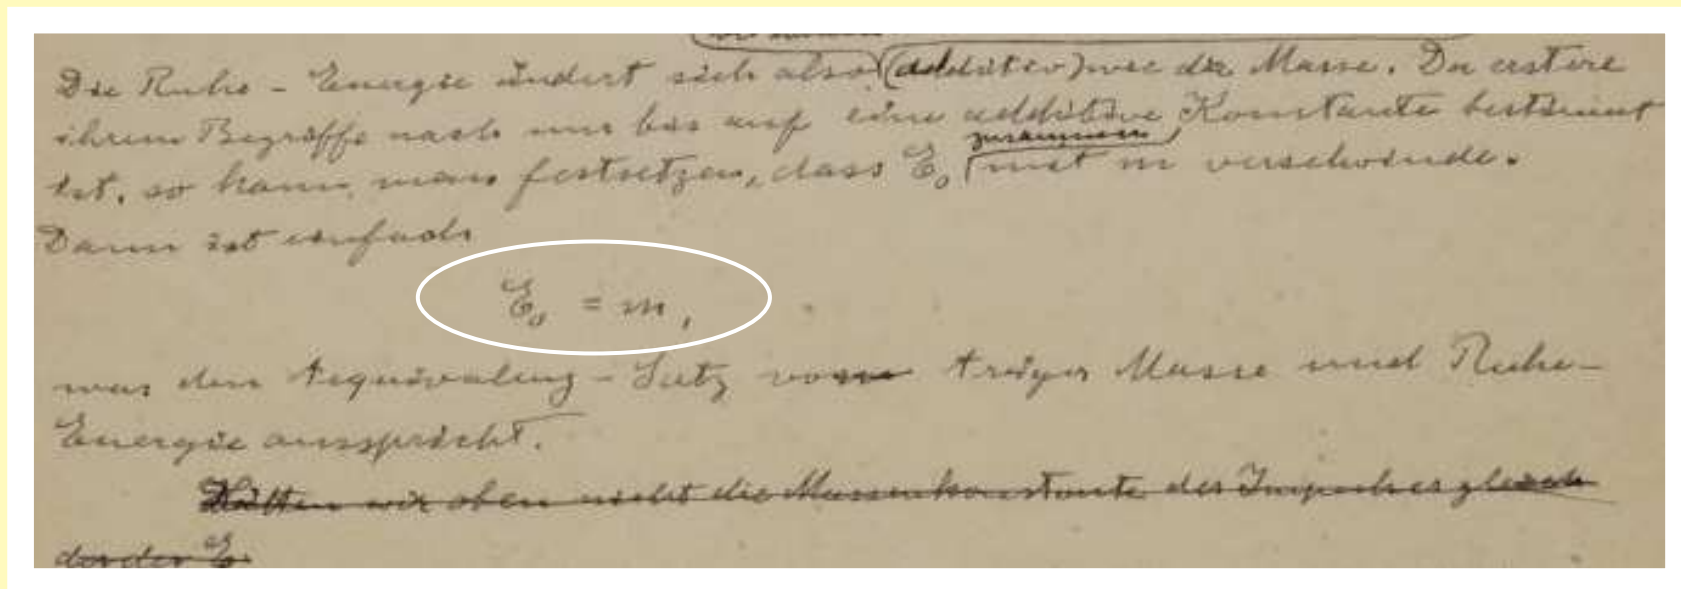 Die Ruhe-Energie ändert sich also (additiv) wie die Masse. Da erstere
ihrem Begriffe nach nur bis auf eine additive Konstante bestimmt
ist, so kann man festsetzen, dass E₀ zusammen mit m verschwinde.
Dann ist einfach
E₀ = m,
was den Aequivalenz-Satz von träger Masse und Ruhe-
Energie ausspricht.
Hätten wir oben nicht die Massenkonstante des Impulses gleich
der der E